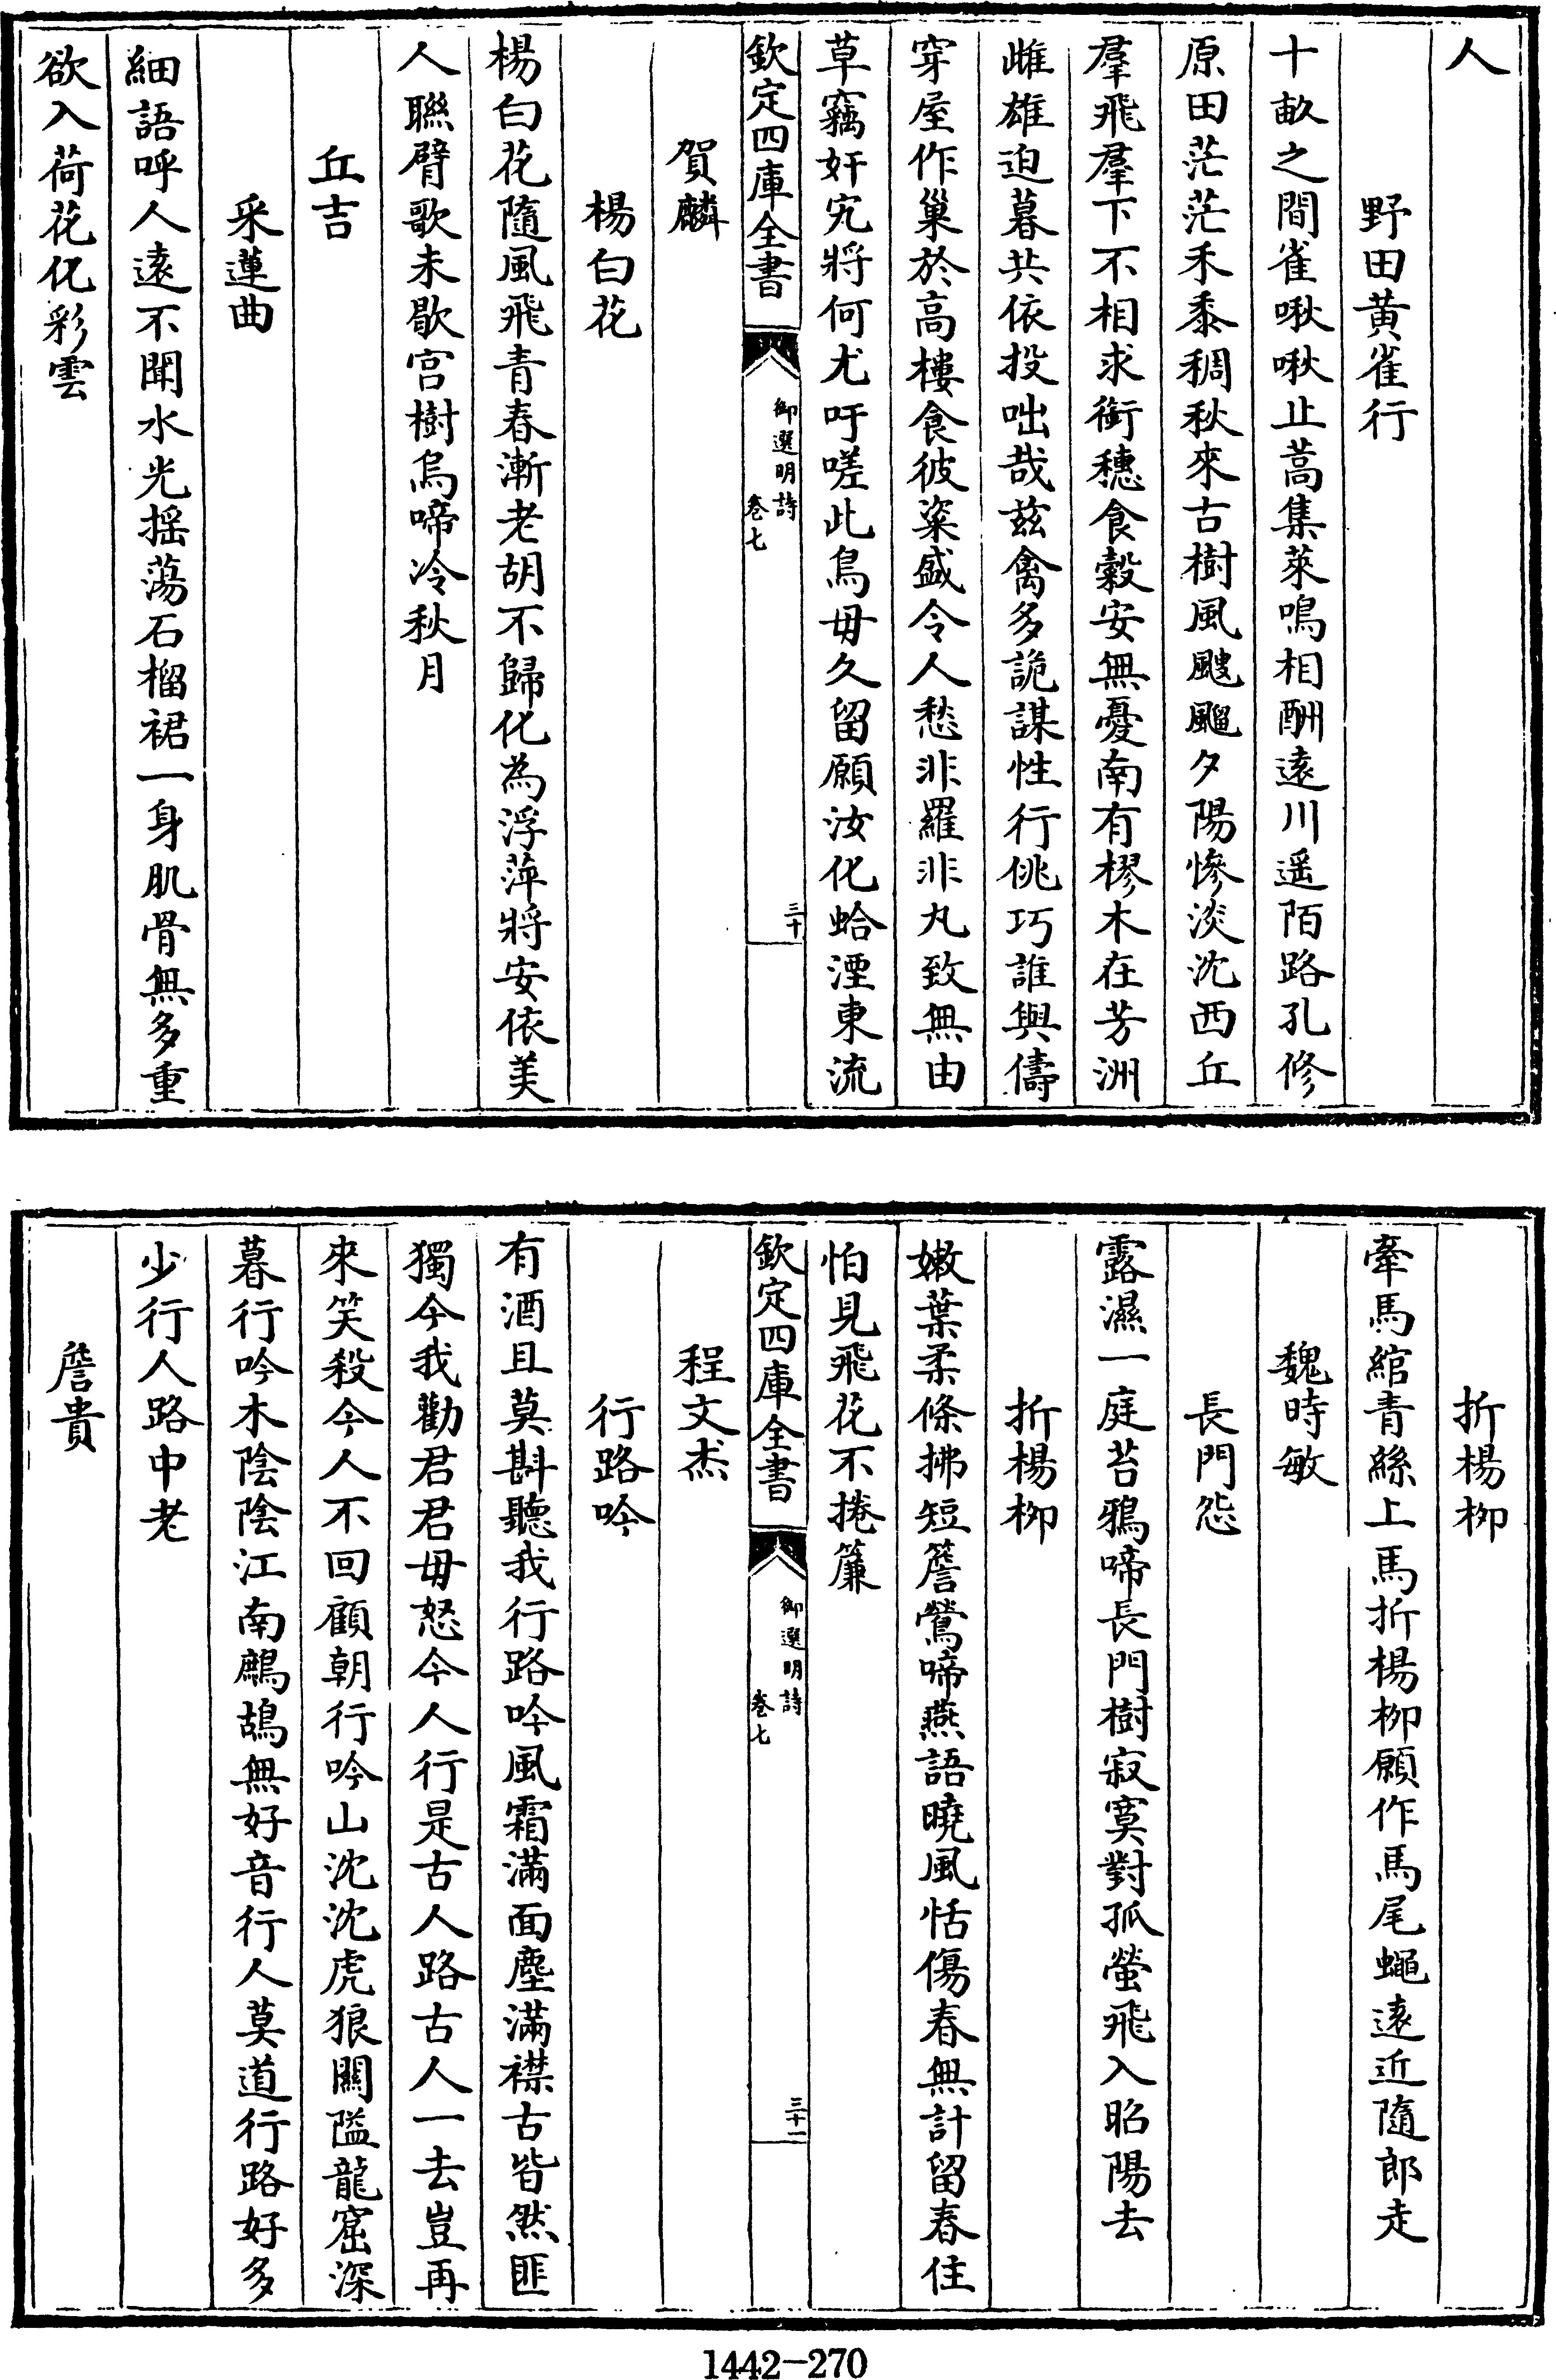 人
野田黄雀行
十畝之間雀啾啾止蒿集萊鳴相酬遠川遥陌路孔修
原田茫茫禾黍稠秋來古樹風颼飀夕陽慘淡沈西丘
羣飛羣下不相求銜穗食穀安無憂南有樛木在芳洲
雌雄迫暮共依投咄哉兹禽多詭謀性行佻巧誰與儔
穿屋作巢於高樓食彼粢盛令人愁非羅非丸致無由
草竊奸宄將何尤吁嗟此鳥毋久留願汝化蛤湮東流
欽定四庫全書
御選明詩
卷七
三十
賀麟
楊白花
楊白花隨風飛青春漸老胡不歸化為浮萍將安依美
人聯臂歌未歇宫樹烏啼冷秋月
丘吉
采蓮曲
細語呼人遠不聞水光摇蕩石榴裙一身肌骨無多重
欲入荷花化彩雲
折楊柳
牽馬綰青絲上馬折楊柳願作馬尾蠅遠近隨郎走
魏時敏
長門怨
露濕一庭苔鴉啼長門樹寂寞對孤螢飛入昭陽去
折楊柳
嫩葉柔條拂短簷鶯啼燕語曉風恬傷春無計留春住
怕見飛花不捲簾
欽定四庫全書
御選明詩
卷七
三十一
程文杰
行路吟
有酒且莫斟聽我行路吟風霜滿面塵滿襟古皆然匪
獨今我勸君君毋怒今人行是古人路古人一去豈再
來笑殺今人不回顧朝行吟山沈沈虎狼關隘龍窟深
暮行吟木陰陰江南鷓鴣無好音行人莫道行路好多
少行人路中老
詹貴
1442-270